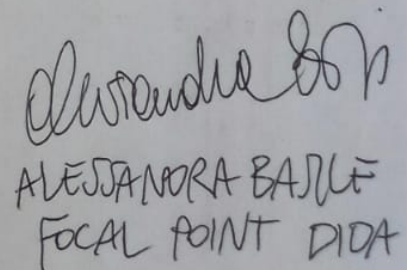 Alessandra
ALESSANDRA BASILE
FOCAL POINT DIDA